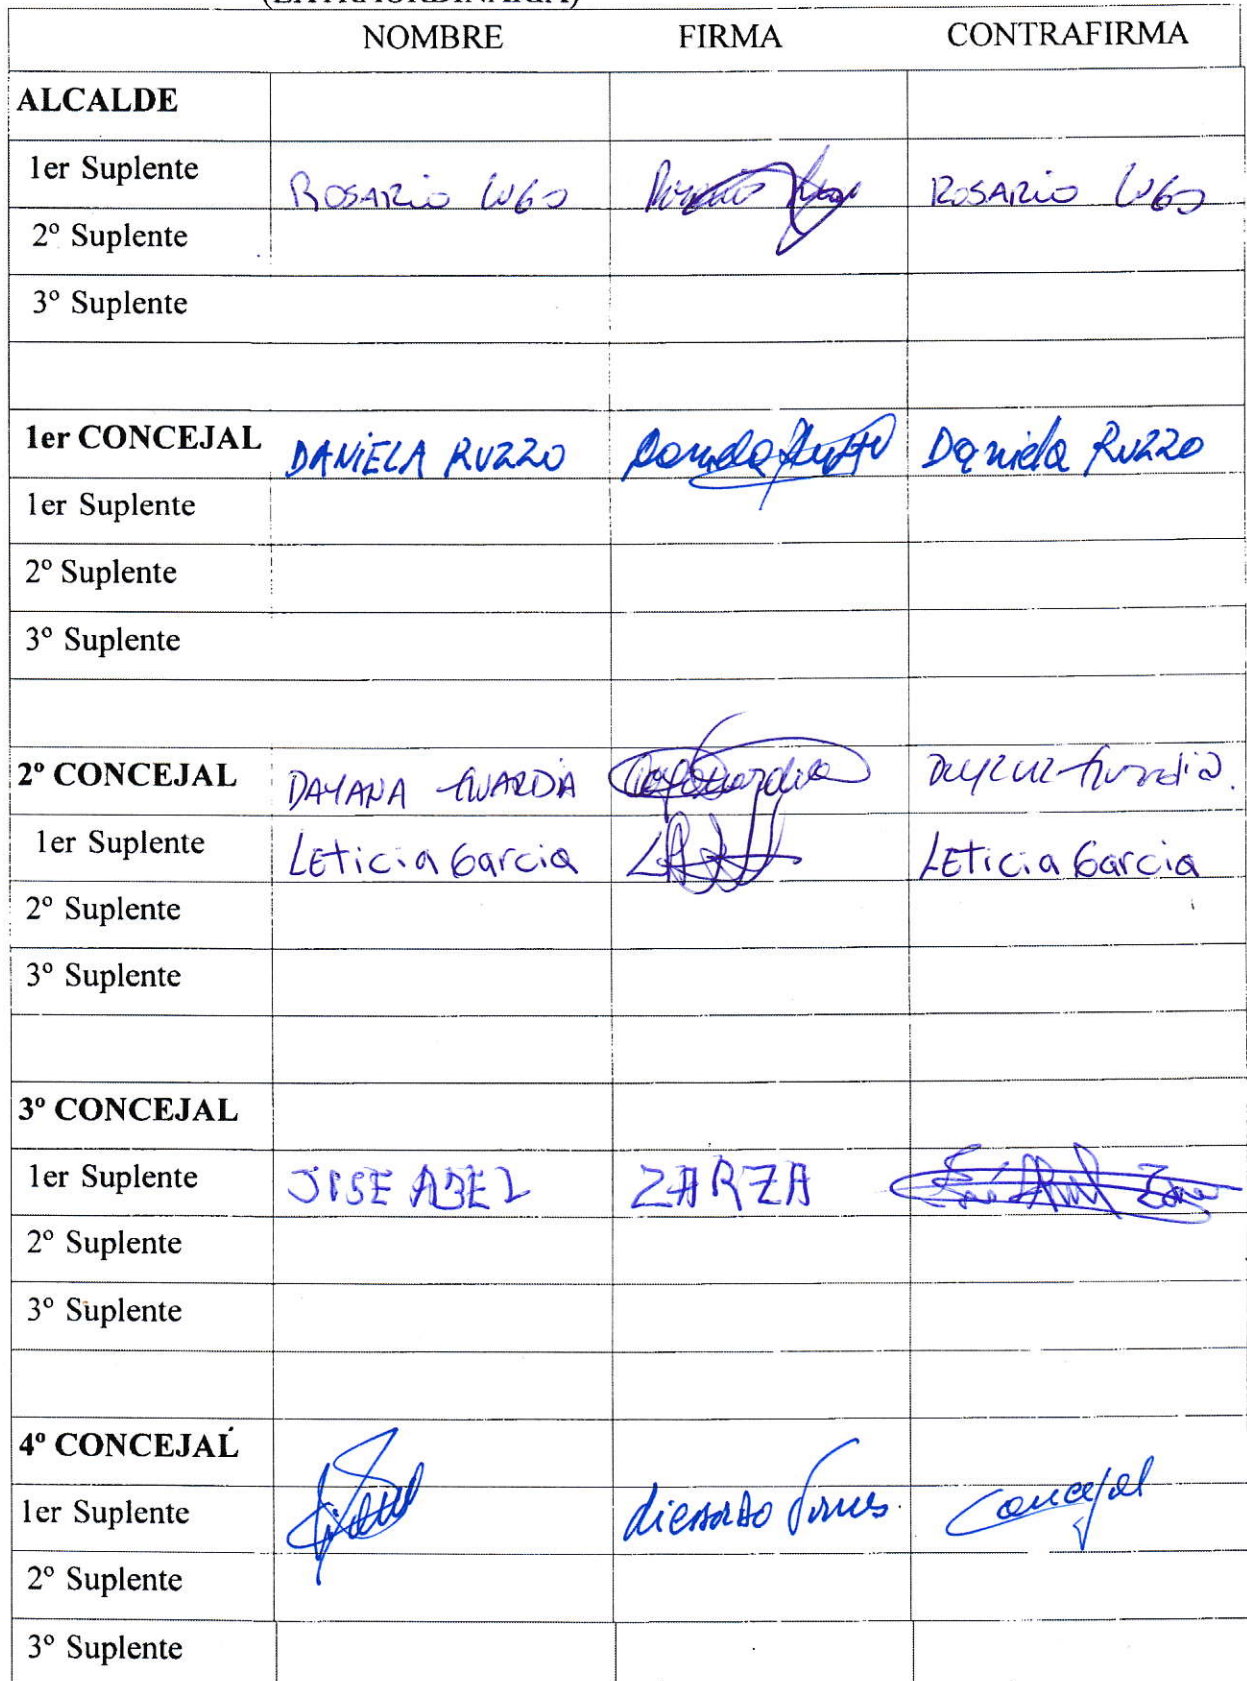 (EXTRAORDINARIA)
NOMBRE FIRMA CONTRAFIRMA
ALCALDE
1er Suplente ROSARIO LUGO ROSARIO LUGO
2º Suplente
3º Suplente
1er CONCEJAL DANIELA RUZZO Daniela Ruzzo Daniela Ruzzo
1er Suplente
2º Suplente
3º Suplente
2º CONCEJAL DAYANA GUARDIA
1er Suplente LEticia Garcia LEticia Garcia
2º Suplente
3º Suplente
3º CONCEJAL
1er Suplente JOSE ABEL ZARZA
2º Suplente
3º Suplente
4º CONCEJAL
1er Suplente Concejal
2º Suplente
3º Suplente